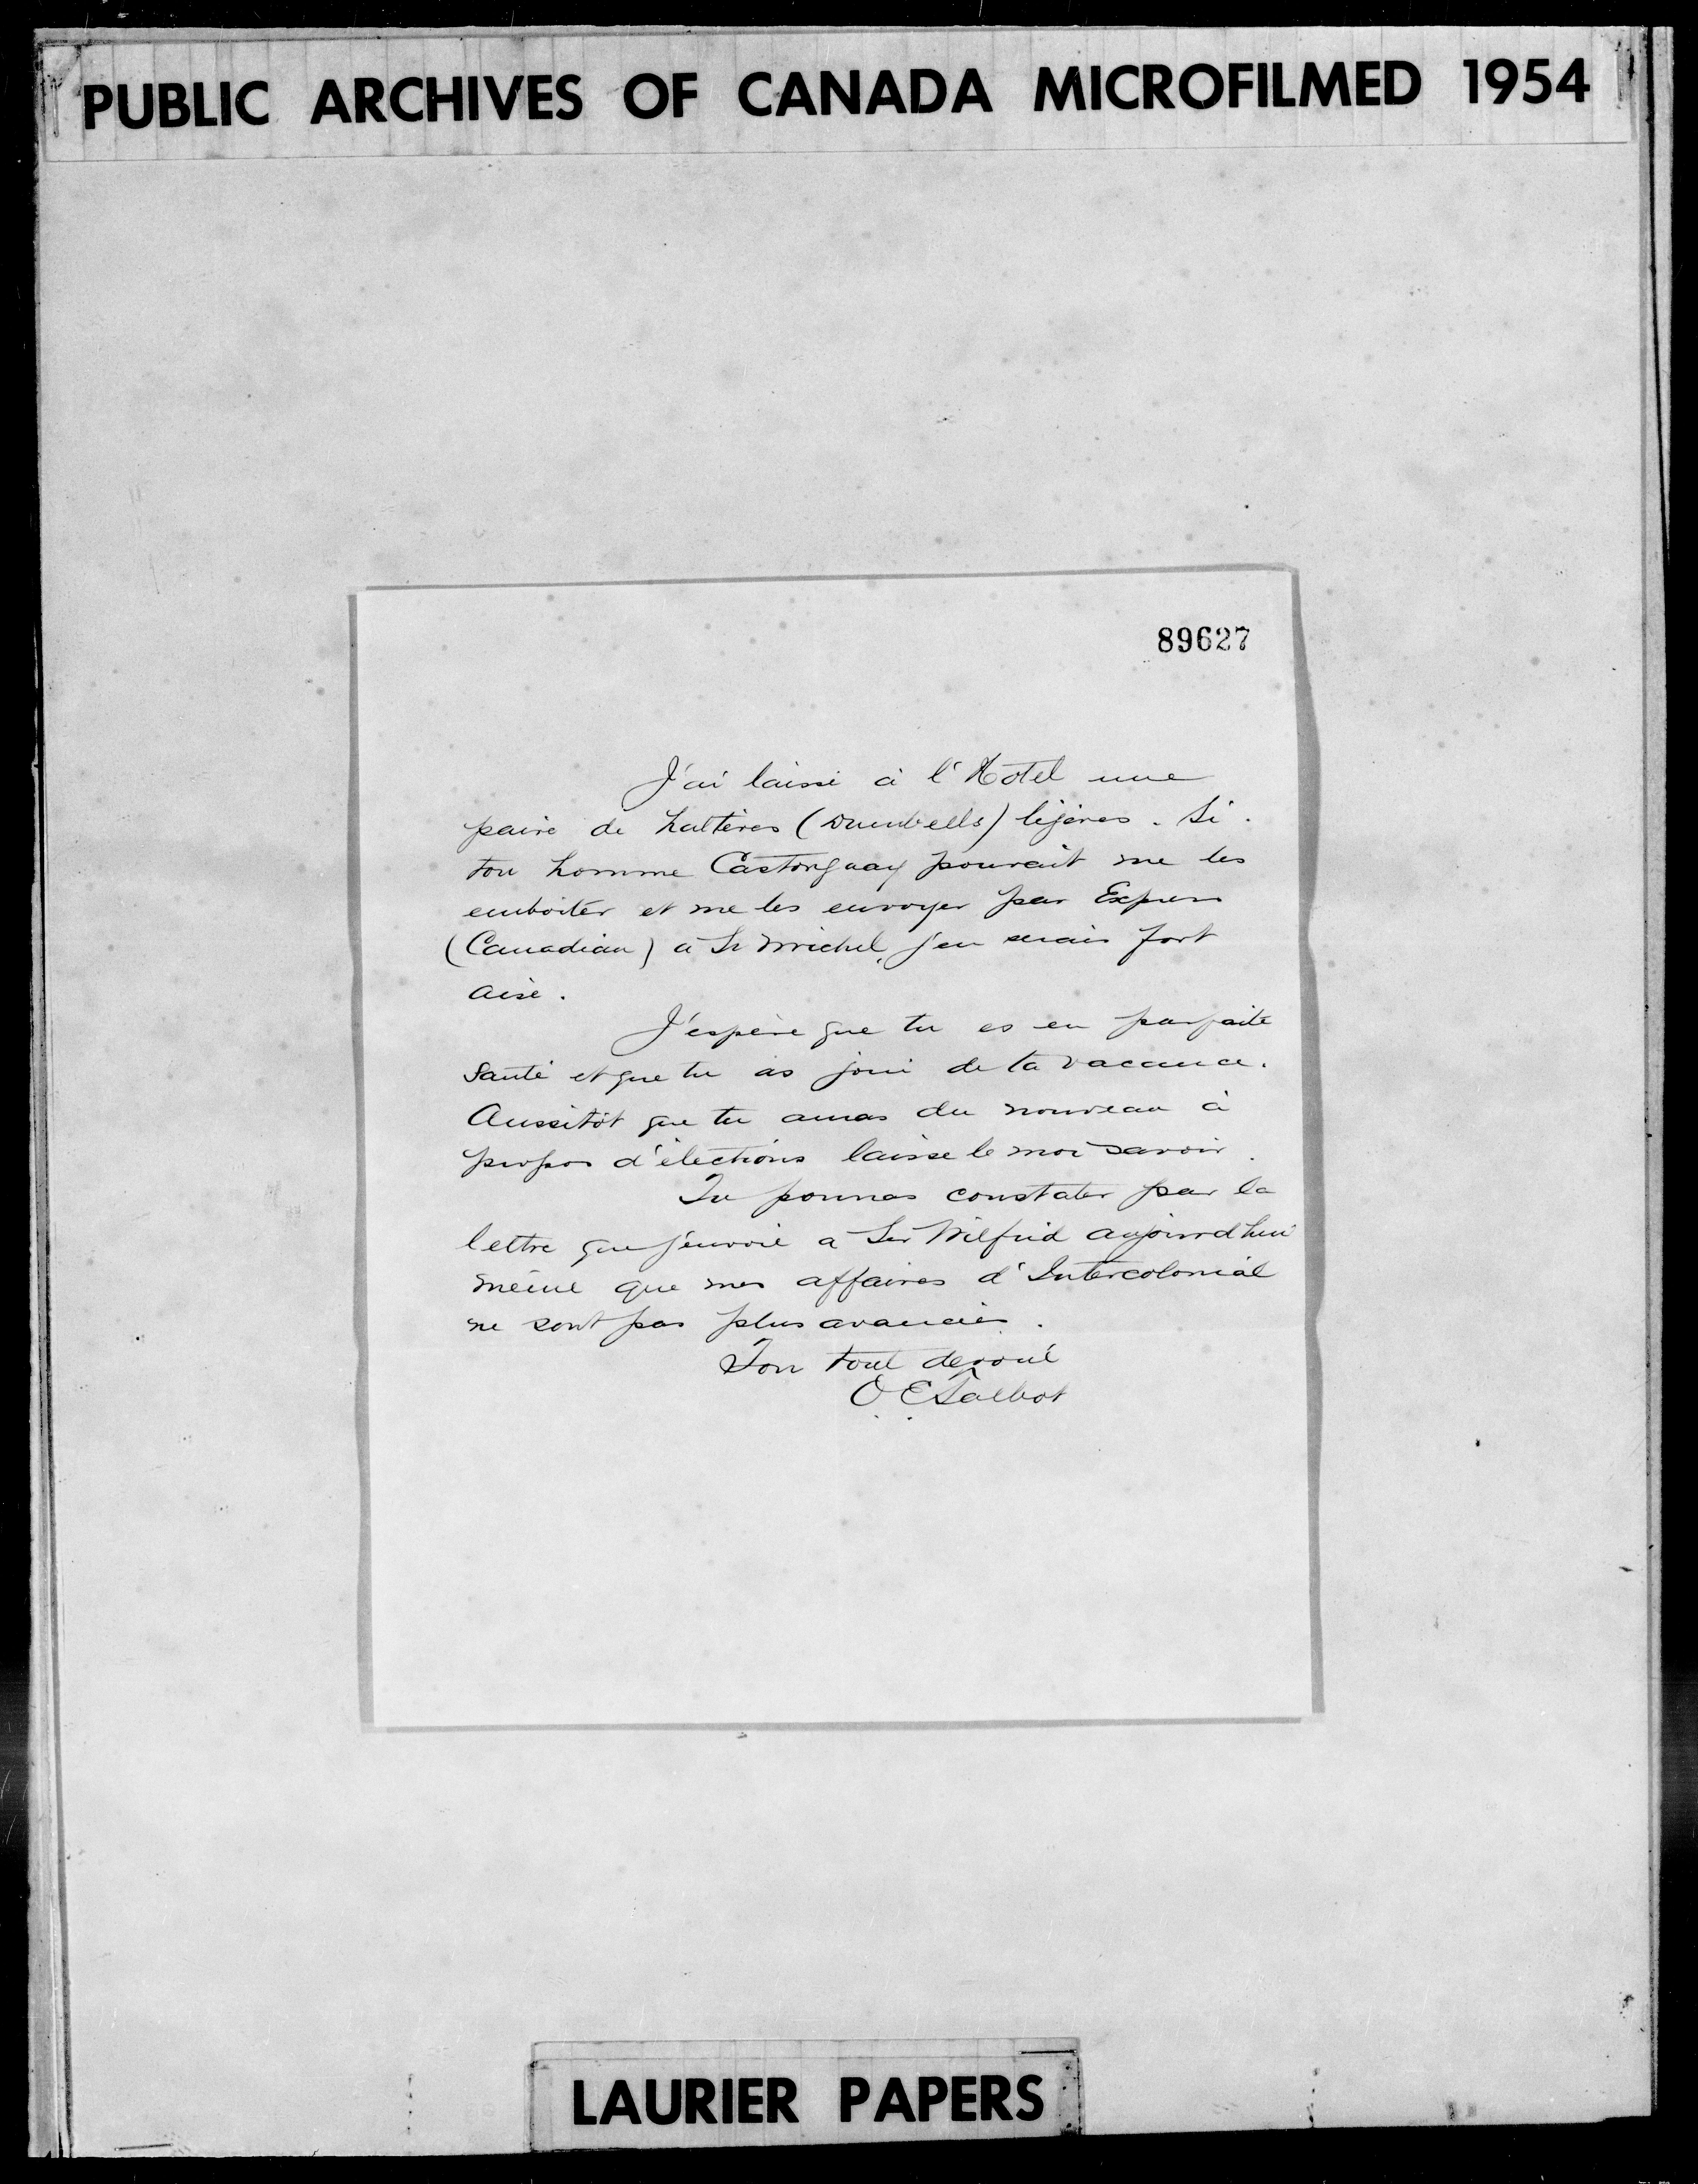 PUBLIC ARCHIVES OF CANADA MICROFILMED 1954
89627
J'ai laissé à l'Hotel une
paire de haltères (Dumbells) légères. Si
ton homme Castonguay pouvait me les
emboiter et me les envoyer par Express
(Canadian) à St Michel, j'en serais fort
aise.
J'espère que tu es en parfaite
santé et que tu as joui de ta vacance.
Aussitôt que tu auras du nouveau à
propos d'élections laisse le moi savoir.
Tu pourras constater par la
lettre que j'envoie a Sir Wilfrid aujourd'hui
même que mes affaires d'Intercolonial
ne sont pas plus avancées.
Ton tout dévoué
O. E. Talbot
LAURIER PAPERS